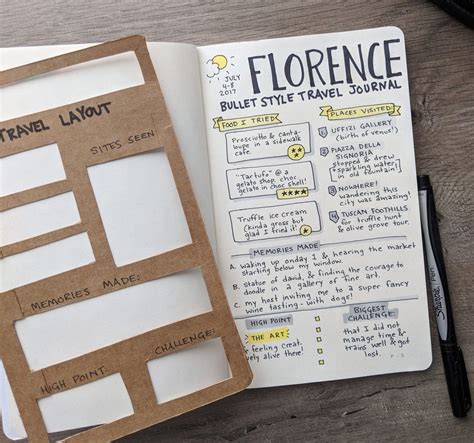 TRAVEL LAYOUT
SITES SEEN
MEMORIES MADE:
HIGH POINT:
CHALLENGE:
JULY
4-8
2017
FLORENCE
BULLET STYLE TRAVEL JOURNAL
FOOD I TRIED
Prosciutto & canta-
bupe in a sidewalk
cafe
"Tartufo" @ a
gelato shop. choc.
gelato in choc shell!
Truffle ice cream
(kinda gross but
glad I tried it!)
PLACES VISITED
1 UFFIZI GALLERY
(birth of venus!)
2 PIAZZA DELLA
SIGNORIA
stopped & drew
sparkling water in
old fountain!
3 NOWHERE!
wandering this
city was amazing!
4 TUSCAN FOOTHILLS
for truffle hunt
& olive grove tour.
MEMORIES MADE
A. waking up on day 1 & hearing the market
starting below my window.
B. statue of david, & finding the courage to
doodle in a gallery of fine art.
C. my host inviting me to a super fancy
wine tasting.. with dogs!
HIGH POINT
THE ART
feeling creat-
ively alive there!
BIGGEST
CHALLENGE:
that I did not
manage time &
trains well & got
lost.
Sharpie